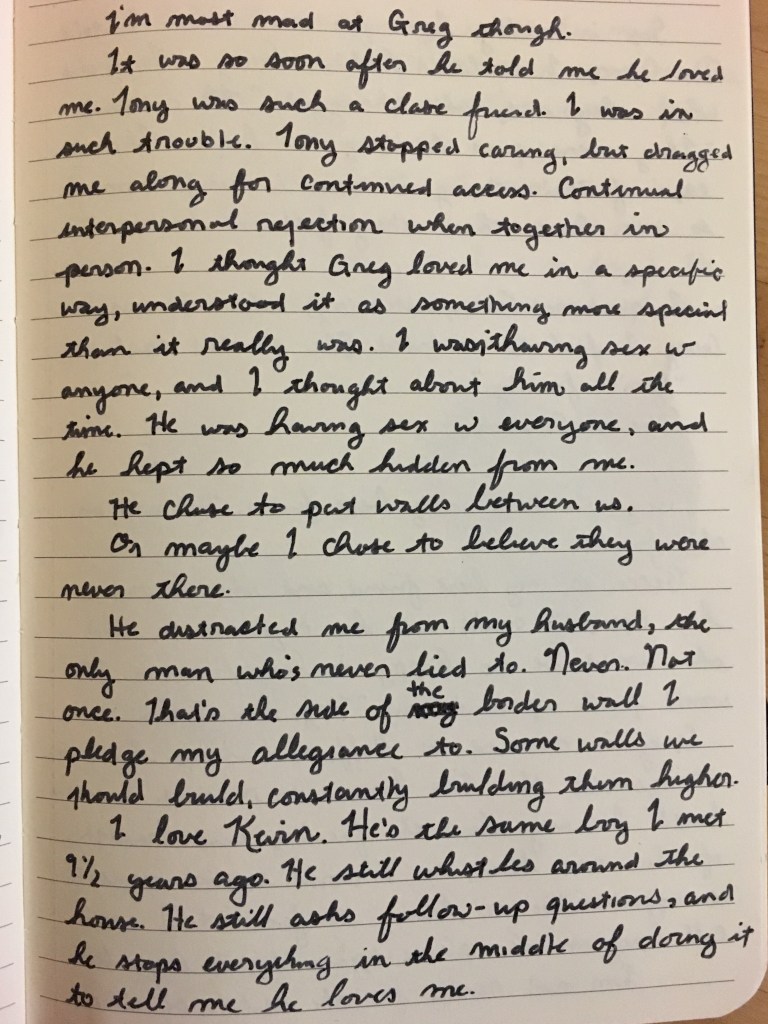 I'm most mad at Greg though.
It was so soon after he told me he loved
me. Tony was such a close friend. I was in
such trouble. Tony stopped caring, but dragged
me along for continued access. Continual
interpersonal rejection when together in
person. I thought Greg loved me in a specific
way, understood it as something more special
than it really was. I wasn't having sex w
anyone, and I thought about him all the
time. He was having sex w everyone, and
he kept so much hidden from me.
He chose to put walls between us.
Or maybe I chose to believe they were
never there.
He distracted me from my husband, the
only man who's never lied to. Never. Not
once. That's the side of the border wall I
pledge my allegiance to. Some walls we
should build, constantly building them higher.
I love Kevin. He's the same boy I met
9 1/2 years ago. He still whistles around the
house. He still asks follow-up questions, and
he stops everything in the middle of doing it
to tell me he loves me.